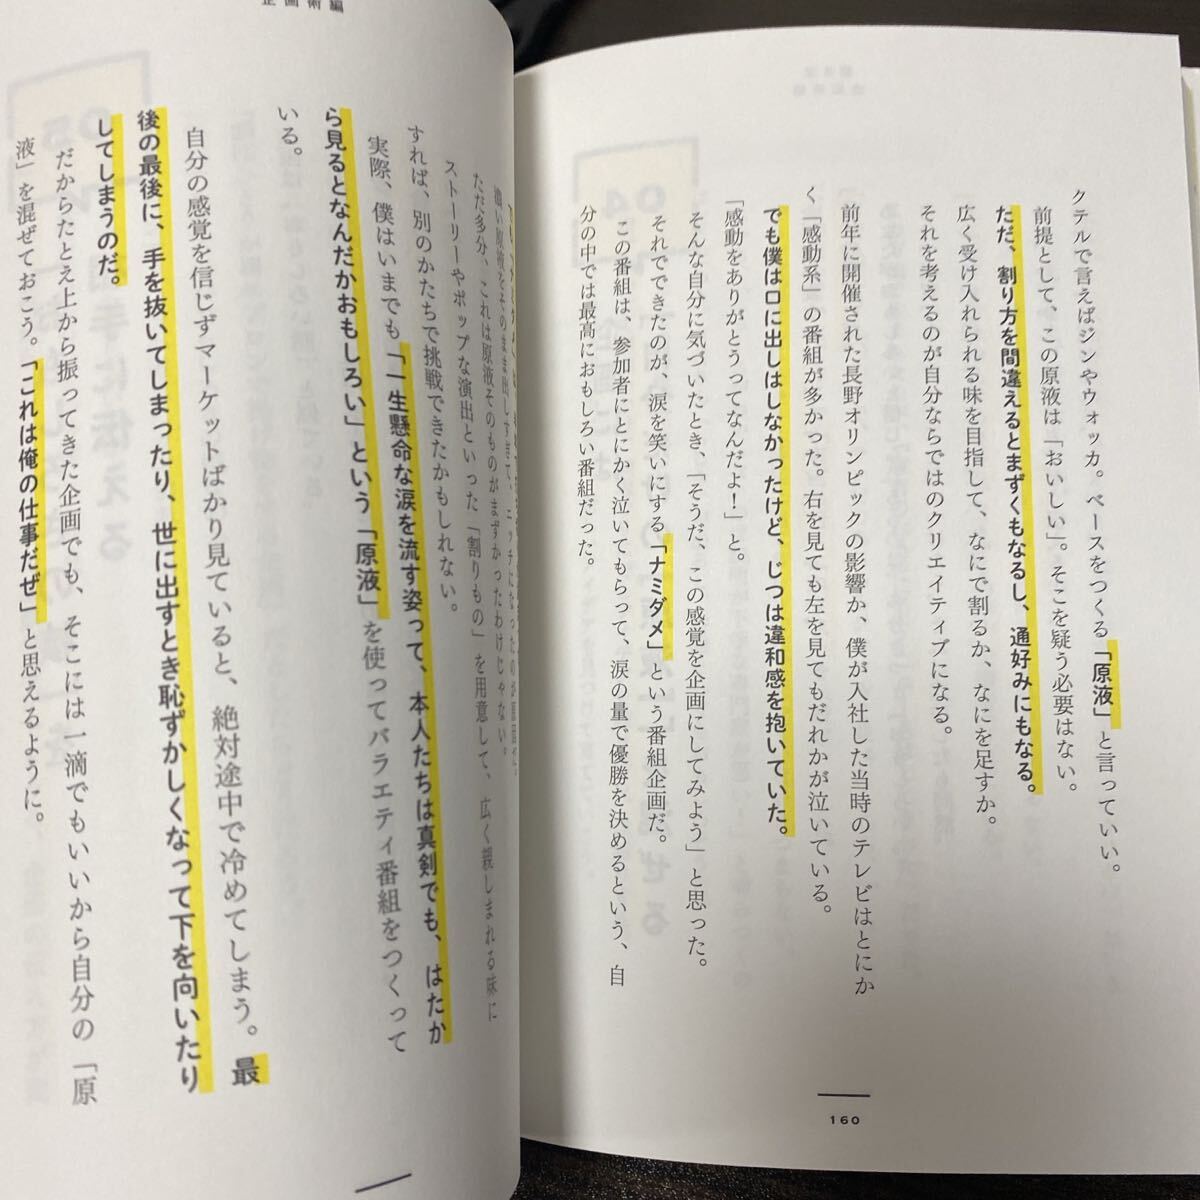 クテルで言えばジンやウォッカ。ベースをつくる「原液」と言っていい。
前提として、この原液は「おいしい」。そこを疑う必要はない。
ただ、割り方を間違えるとまずくもなるし、通好みにもなる。
広く受け入れられる味を目指して、なにで割るか、なにを足すか。
それを考えるのが自分ならではのクリエイティブになる。
前年に開催された長野オリンピックの影響か、僕が入社した当時のテレビはとにか
く「感動系」の番組が多かった。右を見ても左を見てもだれかが泣いている。
でも僕は口に出しはしなかったけど、じつは違和感を抱いていた。
「感動をありがとうってなんだよ！」と。
そんな自分に気づいたとき、「そうだ、この感覚を企画にしてみよう」と思った。
それでできたのが、涙を笑いにする「ナミダメ」という番組企画だ。
この番組は、参加者にとにかく泣いてもらって、涙の量で優勝を決めるという、自
分の中では最高におもしろい番組だった。
160
企画術編
ただ多分、これは原液そのものがまずかったわけじゃない。
ストーリーやポップな演出といった「割りもの」を用意して、広く親しまれる味に
すれば、別のかたちで挑戦できたかもしれない。
実際、僕はいまでも「一生懸命な涙を流す姿って、本人たちは真剣でも、はたか
ら見るとなんだかおもしろい」という「原液」を使ってバラエティ番組をつくって
いる。
自分の感覚を信じずマーケットばかり見ていると、絶対途中で冷めてしまう。最
後の最後に、手を抜いてしまったり、世に出すとき恥ずかしくなって下を向いたり
してしまうのだ。
だからたとえ上から振ってきた企画でも、そこには一滴でもいいから自分の「原
液」を混ぜておこう。「これは俺の仕事だぜ」と思えるように。